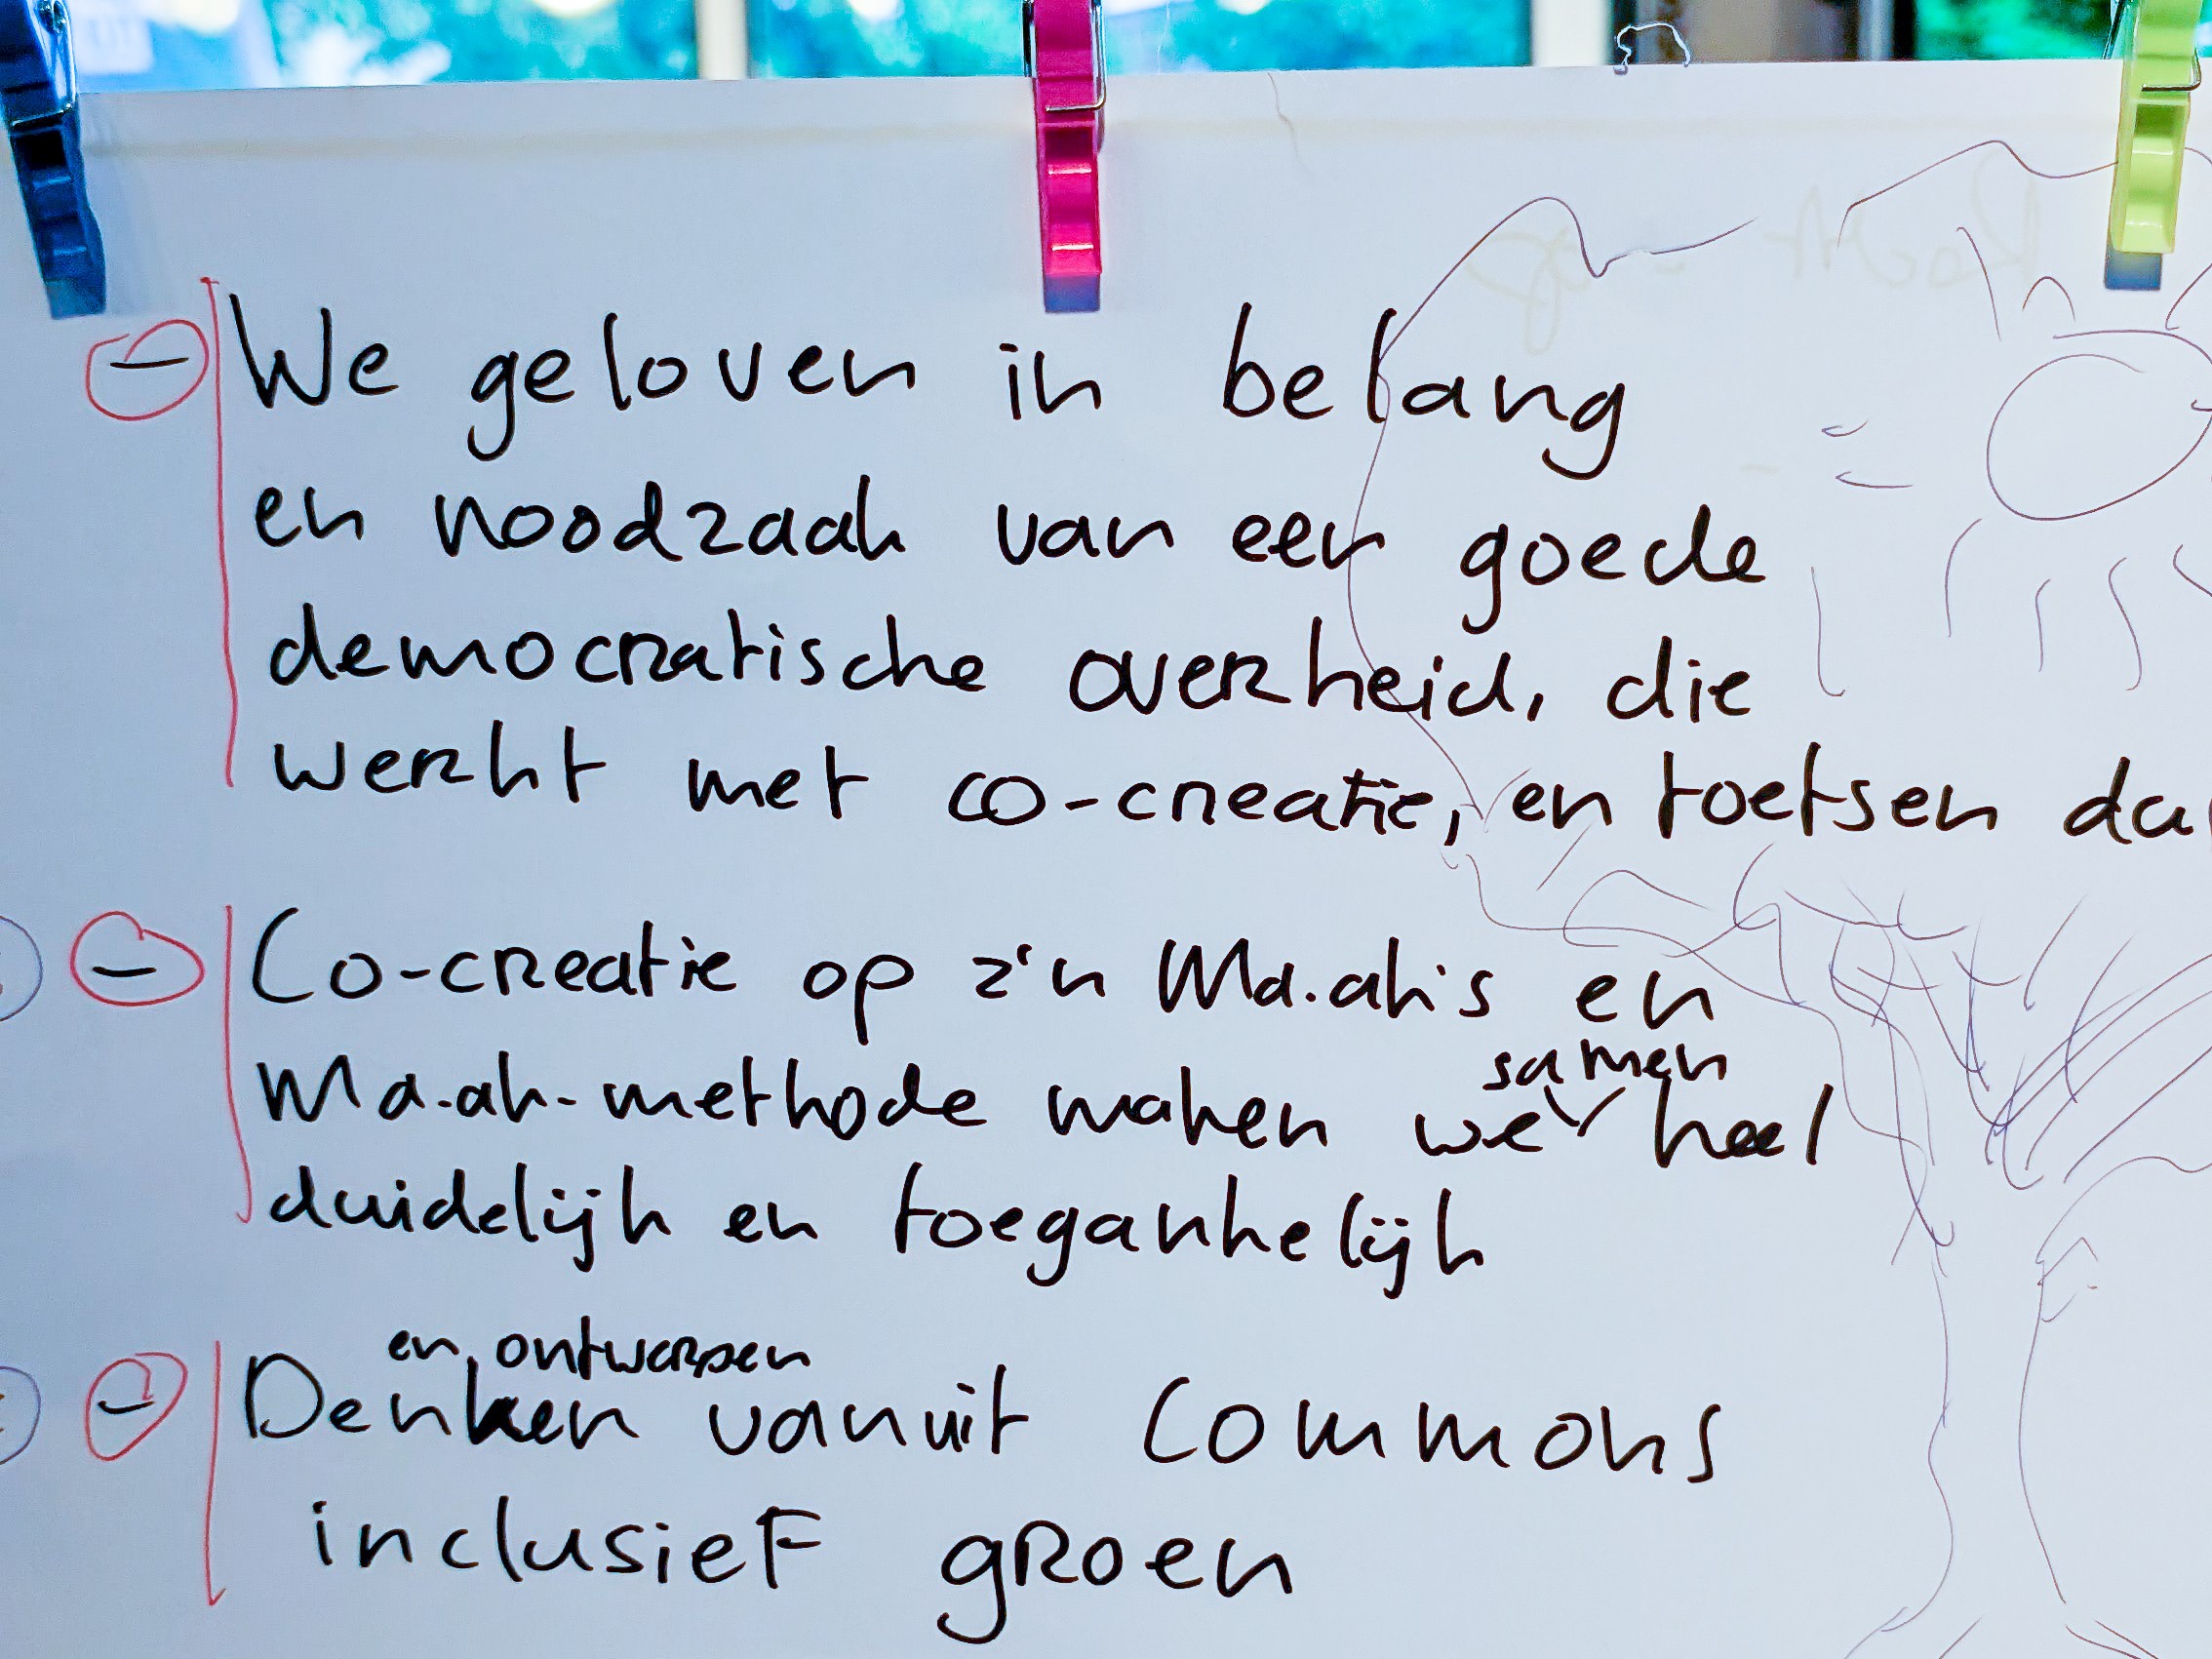 - We geloven in belang
en noodzaak van een goede
democratische overheid, die
werkt met co-creatie, en toetsen da
- Co-creatie op z'n Ma.ak's en
Ma.ak-methode maken we samen heel
duidelijk en toegankelijk
- Denken en ontwerpen vanuit Commons
inclusief groen